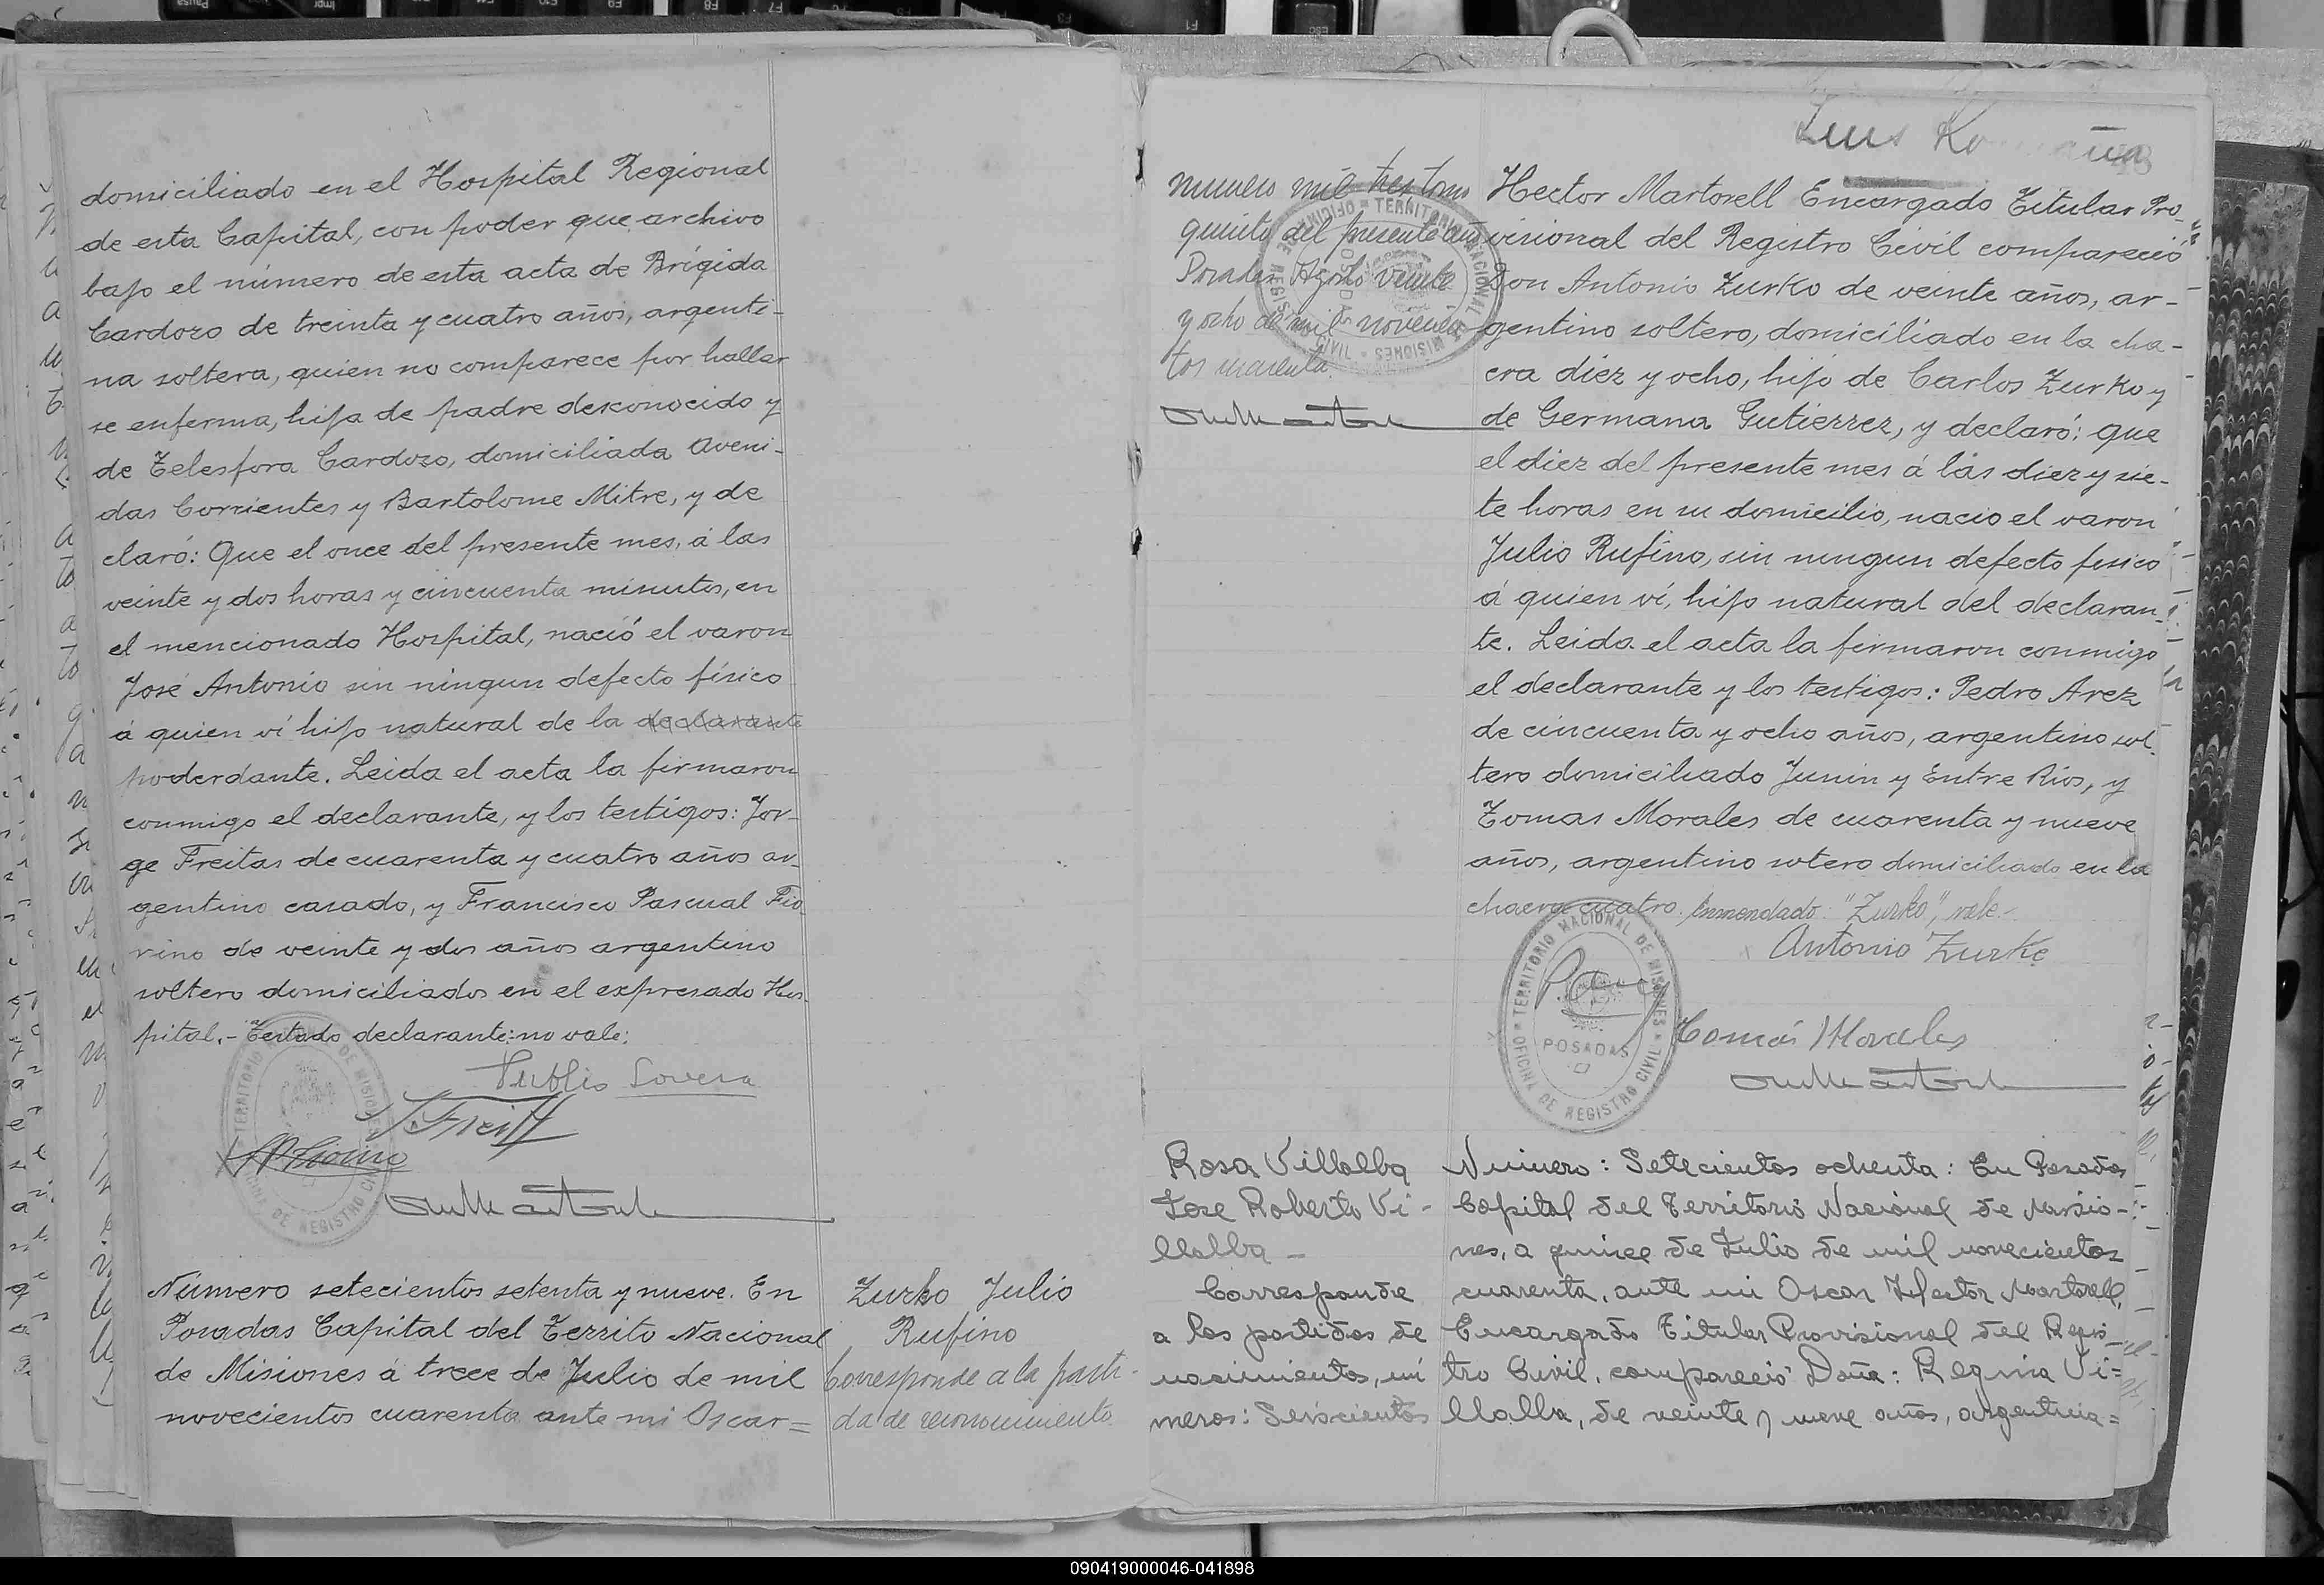 domiciliado en el Hospital Regional
de esta Capital, con poder que archivo
bajo el número de esta acta de Brígida
Cardozo de treinta y cuatro años, argenti-
na soltera, quien no comparece por hallar
se enferma, hija de padre desconocido y
de Telesfora Cardozo, domiciliada Aveni-
das Corrientes y Bartolome Mitre, y de
claró: Que el once del presente mes, á las
veinte y dos horas y cincuenta minutos, en
el mencionado Hospital, nació el varon
José Antonio sin ningun defecto físico
á quien ví hijo natural de la declarante
poderdante. Leida el acta la firmaron
conmigo el declarante, y los testigos: Jor-
ge Freitas de cuarenta y cuatro años ar-
gentino casado, y Francisco Pascual Fio-
rino de veinte y dos años argentino
soltero domiciliados en el expresado Hos-
pital.- Testado declarante: no vale:
TERRITORIO DE MISIONES
OFICINA DE REGISTRO CIVIL
Número setecientos setenta y nueve. En
Posadas Capital del Territo Nacional
de Misiones á trece de Julio de mil
novecientos cuarenta ante mi Oscar=
Zurko Julio
Rufino
Corresponde a la parti-
da de reconocimiento
Luis
numero mil trescientos
quinto del presente año
Posadas Agosto veinte
y ocho de mil novecien
tos cuarenta.
Hector Martorell Encargado Titular Pro-
visional del Registro Civil compareció
Don Antonio Zurko de veinte años, ar-
gentino soltero, domiciliado en la cha-
cra diez y ocho, hijo de Carlos Zurko y
de Germana Gutierrez, y declaró: que
el diez del presente mes á las diez y sie-
te horas en su domicilio, nacio el varon
Julio Rufino, sin ningun defecto fisico
á quien ví, hijo natural del declaran-
te. Leida el acta la firmaron conmigo
el declarante y los testigos: Pedro Arez
de cincuenta y ocho años, argentino sol-
tero domiciliado Junin y Entre Rios, y
Tomas Morales de cuarenta y nueve
años, argentino sotero domiciliado en la
chacra cuatro. Enmendado: "Zurko", vale.-
Antonio Zurko
TERRITORIO NACIONAL DE MISIONES
POSADAS
OFICINA DE REGISTRO CIVIL
Tomás Morales
Rosa Villalba
Jose Roberto Vi-
llalba -
Corresponde
a las partidas de
nacimientos, nú
meros: Seiscientos
Número: Setecientos ochenta: En Posadas
Capital del Territorio Nacional de Misio-
nes, a quince de Julio de mil novecientos
cuarenta, ante mi Oscar Hector Martorell,
Encargado Titular Provisional del Regis-
tro Civil, compareció Doña: Regina Vi=
llalba, de veinte y nueve años, argentina=
090419000046-041898